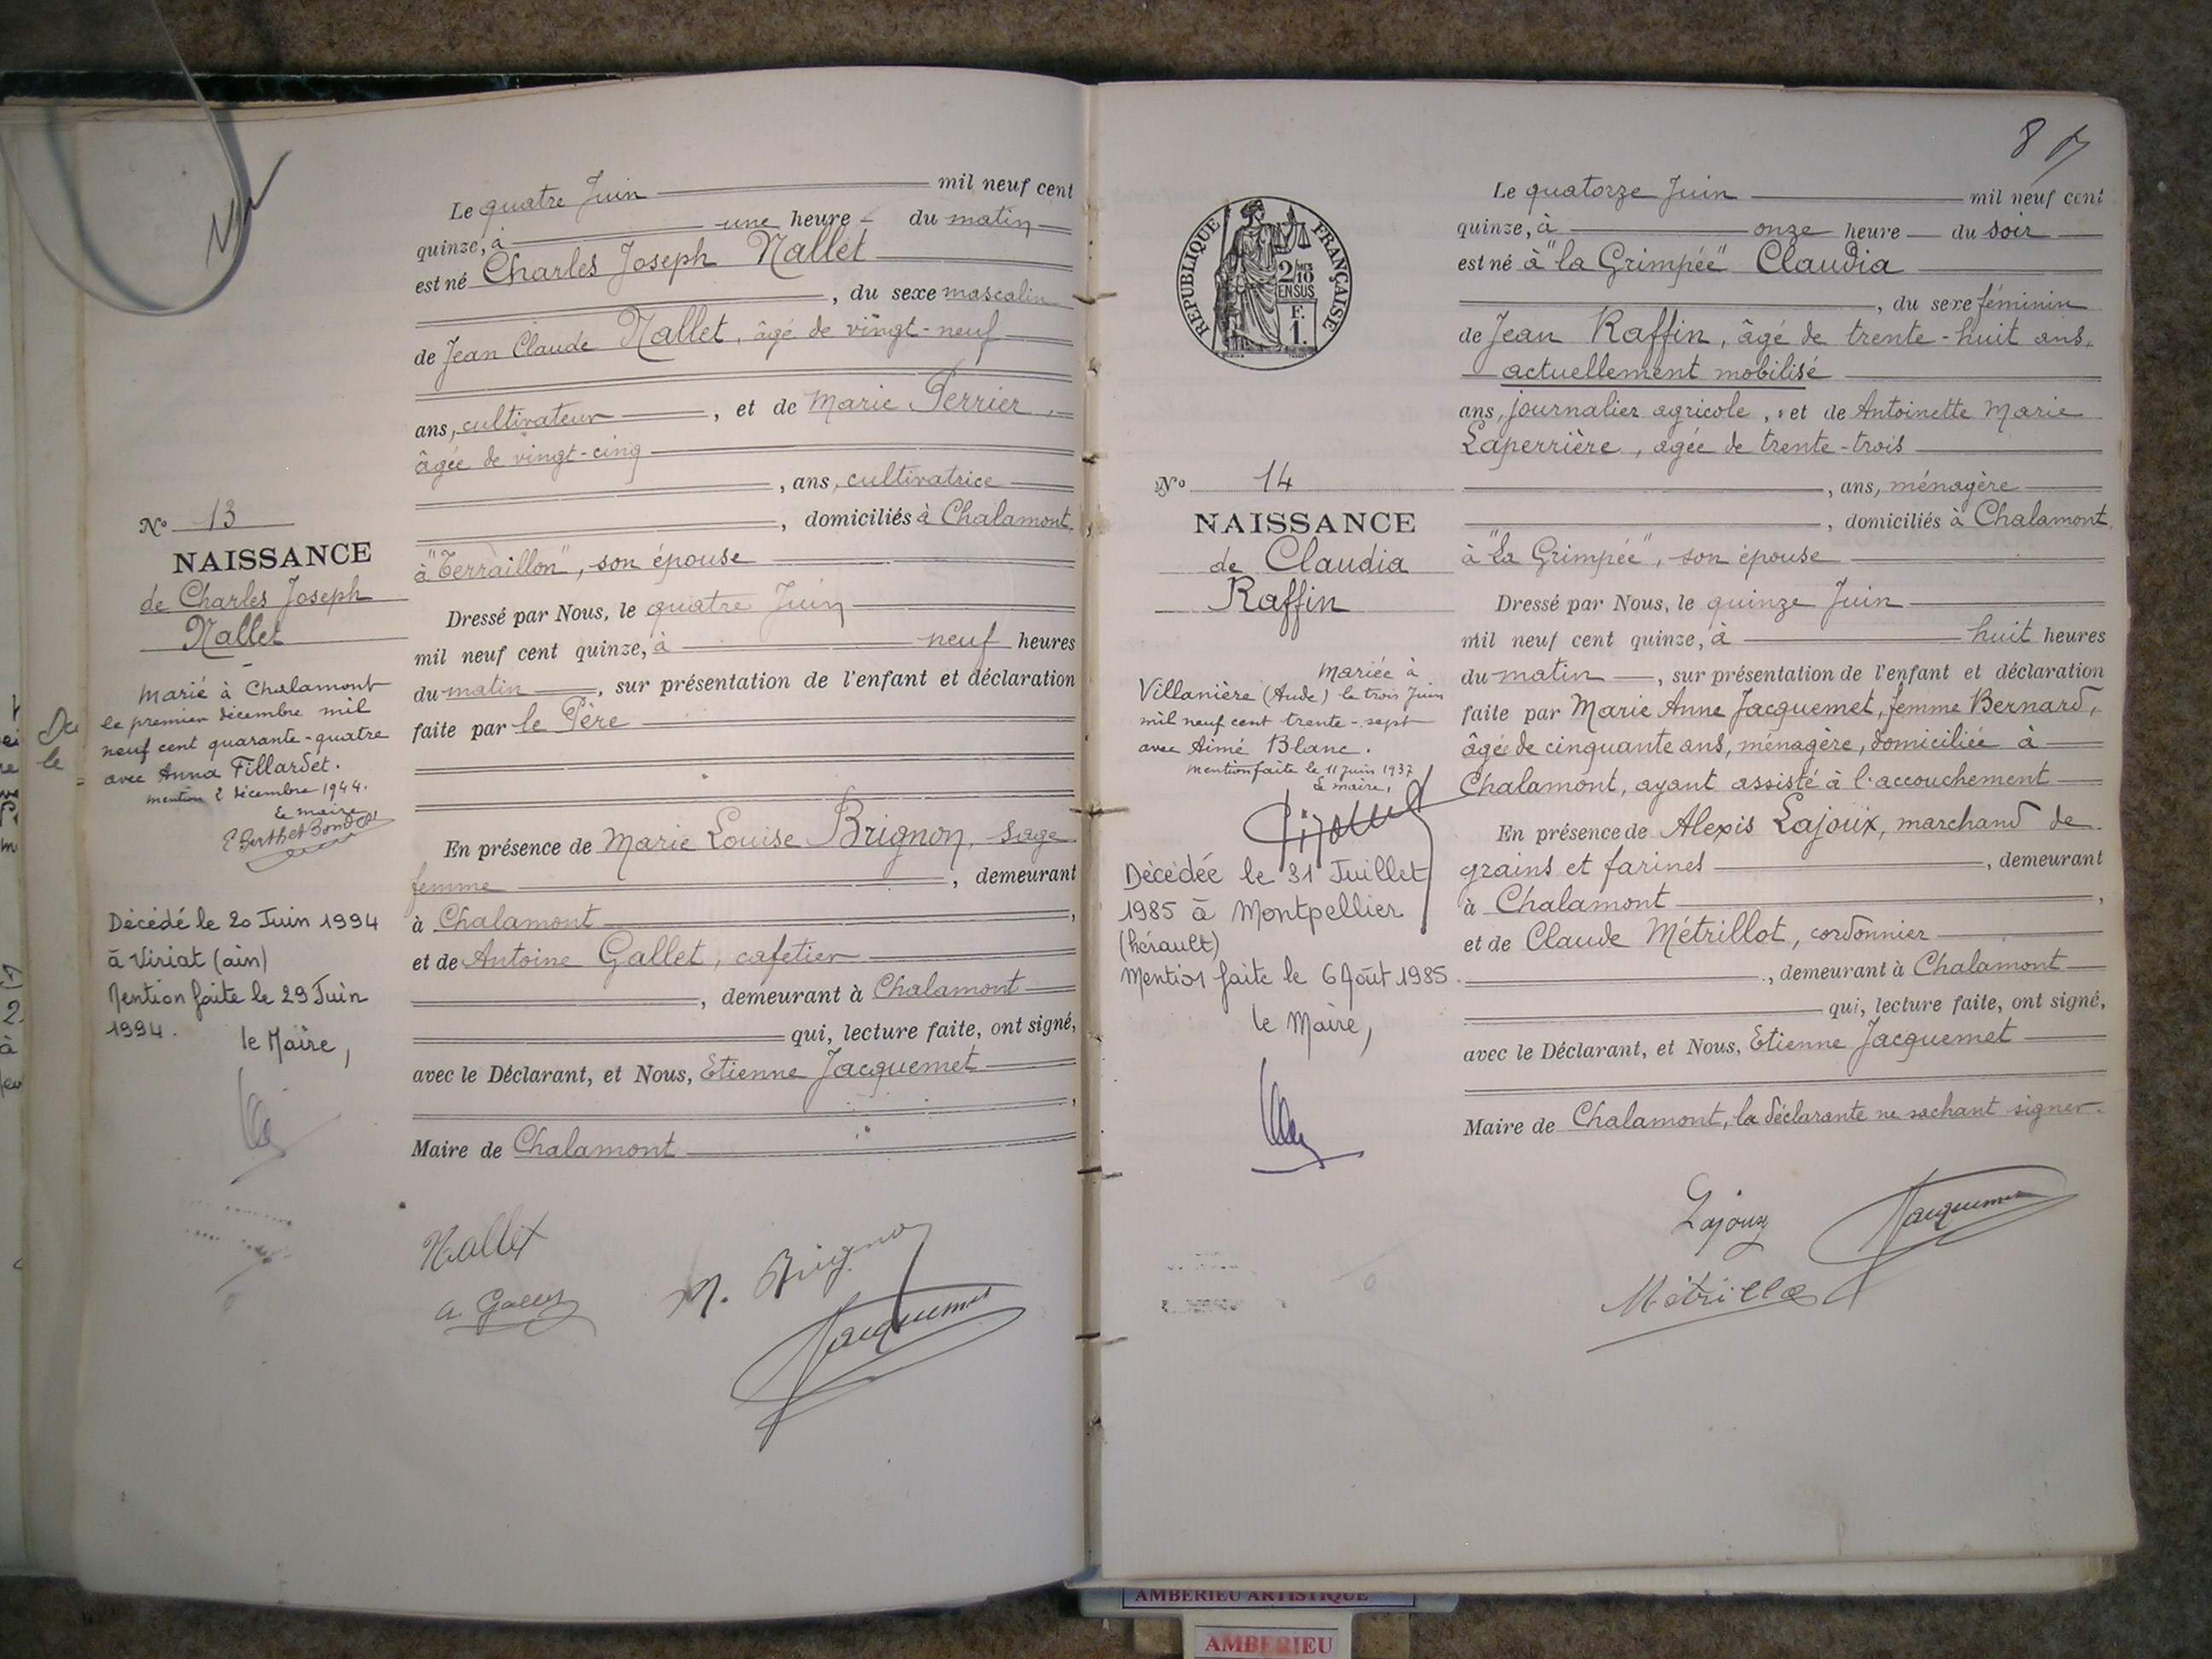 Le quatre Juin mil neuf cent
quinze, à une heure du matin
est né Charles Joseph Nallet
, du sexe masculin
de Jean Claude Nallet, âgé de vingt-neuf
ans, cultivateur , et de Marie Perrier,
âgée de vingt-cinq
, ans, cultivatrice
, domiciliés à Chalamont,
à "Terraillon", son épouse
Dressé par Nous, le quatre Juin
mil neuf cent quinze, à neuf heures
du matin , sur présentation de l'enfant et déclaration
faite par le Père
En présence de Marie Louise Brignon, sage
femme , demeurant
à Chalamont ,
et de Antoine Gallet, cafetier
, demeurant à Chalamont
qui, lecture faite, ont signé,
avec le Déclarant, et Nous, Etienne Jacquemet
,
Maire de Chalamont
Nallet
M. Brignon
a. Gallet
Jacquemet
N° 13
NAISSANCE
de Charles Joseph
Nallet
Marié à Chalamont
le premier décembre mil
neuf cent quarante-quatre
avec Anna Fillardet.
mention 2 décembre 1944.
Le maire
Décédé le 20 Juin 1994
à Viriat (ain)
Mention faite le 29 Juin
1994.
le Maire,
8
RÉPUBLIQUE FRANÇAISE
2/10
EN SUS
F.
1.
N° 14
NAISSANCE
de Claudia
Raffin
Mariée à
Villanière (Aude) le trois Juin
mil neuf cent trente-sept
avec Aimé Blanc.
mention faite le 11 Juin 1937
Le maire,
Décédée le 31 Juillet
1985 à Montpellier
(hérault)
Mention faite le 6 Août 1985.
le Maire,
Le quatorze Juin mil neuf cent
quinze, à onze heure du soir
est né à "la Grimpée" Claudia
, du sexe féminin
de Jean Raffin, âgé de trente-huit ans,
actuellement mobilisé
ans, journalier agricole, et de Antoinette Marie
Laperrière, agée de trente-trois
, ans, ménagère
, domiciliés à Chalamont,
à "la Grimpée", son épouse
Dressé par Nous, le quinze Juin
mil neuf cent quinze, à huit heures
du matin , sur présentation de l'enfant et déclaration
faite par Marie Anne Jacquemet, femme Bernard,
âgée de cinquante ans, ménagère, domiciliée à
Chalamont, ayant assisté à l'accouchement
En présence de Alexis Lajoux, marchand de
grains et farines , demeurant
à Chalamont ,
et de Claude Métrillot, cordonnier
, demeurant à Chalamont
qui, lecture faite, ont signé,
avec le Déclarant, et Nous, Etienne Jacquemet
Maire de Chalamont, la déclarante ne sachant signer.
Lajoux
Jacquemet
AMBERIEU ARTISTIQUE
AMBERIEU